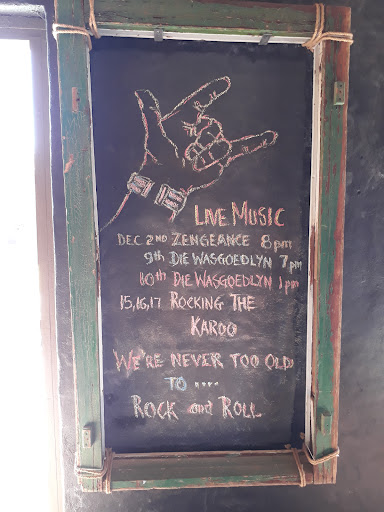 LIVE MUSIC
DEC 2ND ZENGEANCE 8pm
9th DIE WASGOEDLYN 7pm
10th DIE WASGOEDLYN 1pm
15,16,17 ROCKING THE
KAROO
WE'RE NEVER TOO OLD
TO ....
ROCK and ROLL